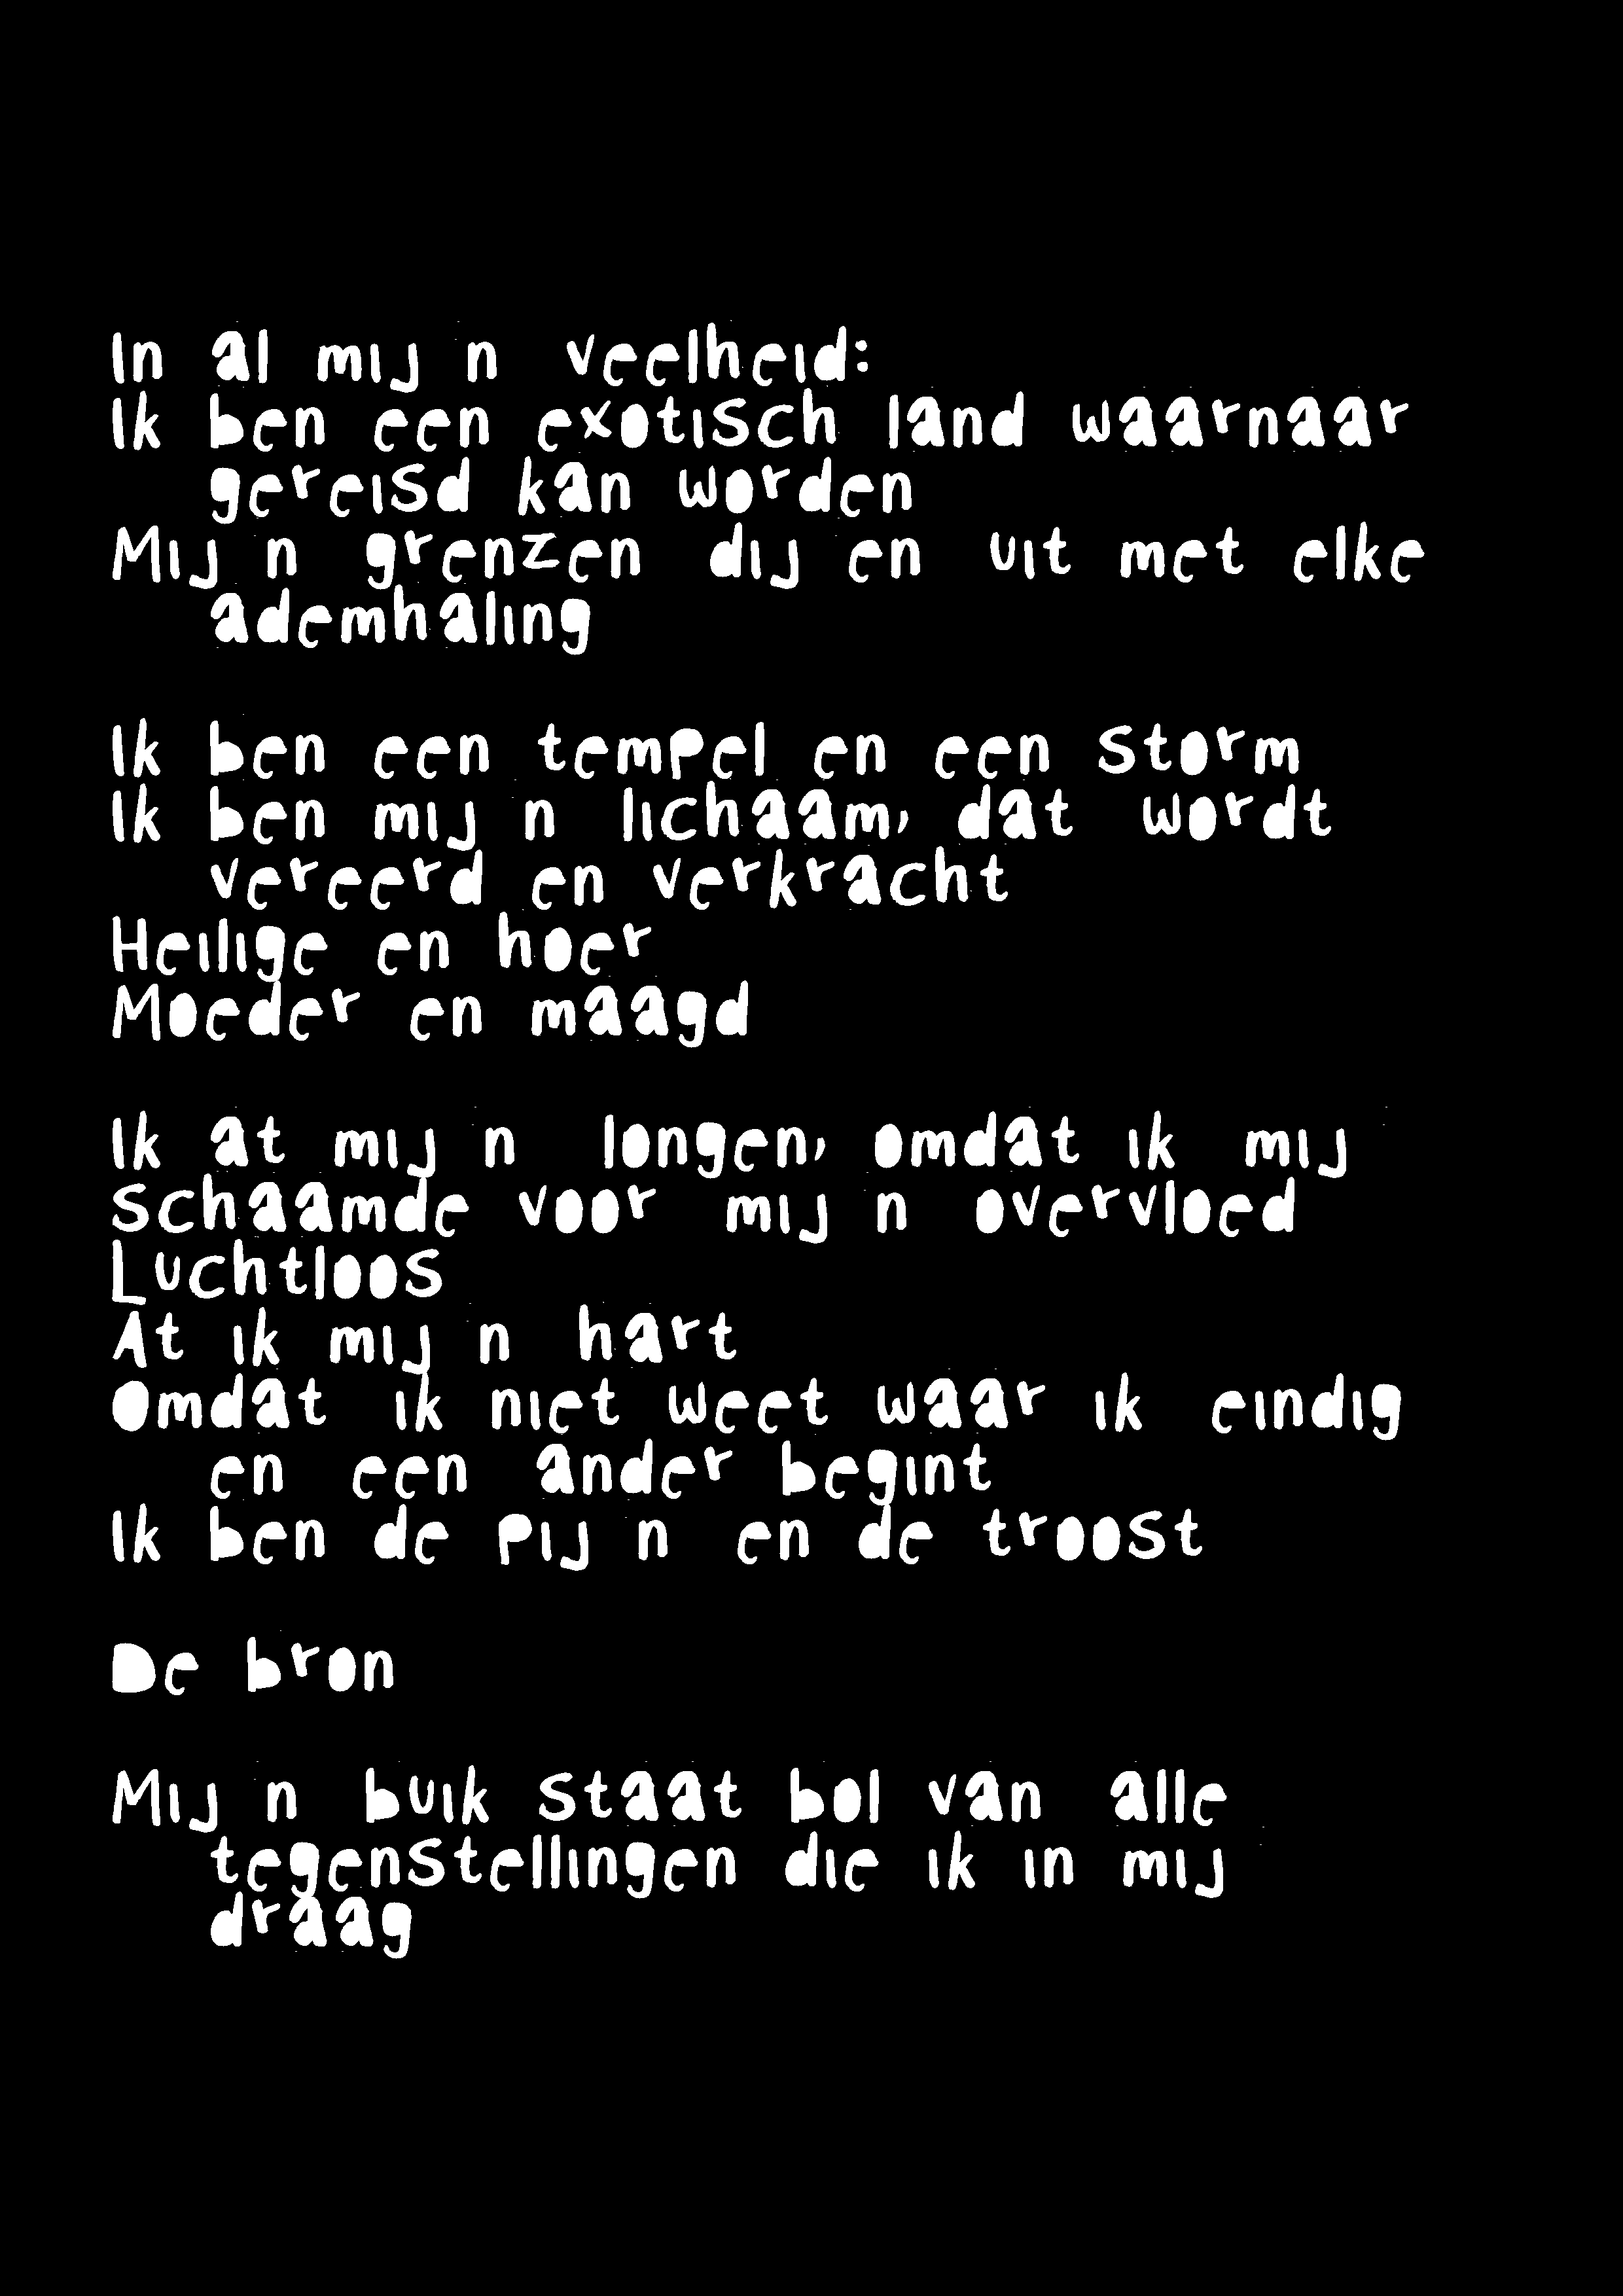 In al mijn veelheid:
Ik ben een exotisch land waarnaar
gereisd kan worden
Mijn grenzen dijen uit met elke
ademhaling
Ik ben een tempel en een storm
Ik ben mijn lichaam, dat wordt
vereerd en verkracht
Heilige en hoer
Moeder en maagd
Ik at mijn longen, omdat ik mij
schaamde voor mijn overvloed
Luchtloos
At ik mijn hart
Omdat ik niet weet waar ik eindig
en een ander begint
Ik ben de pijn en de troost
De bron
Mijn buik staat bol van alle
tegenstellingen die ik in mij
draag